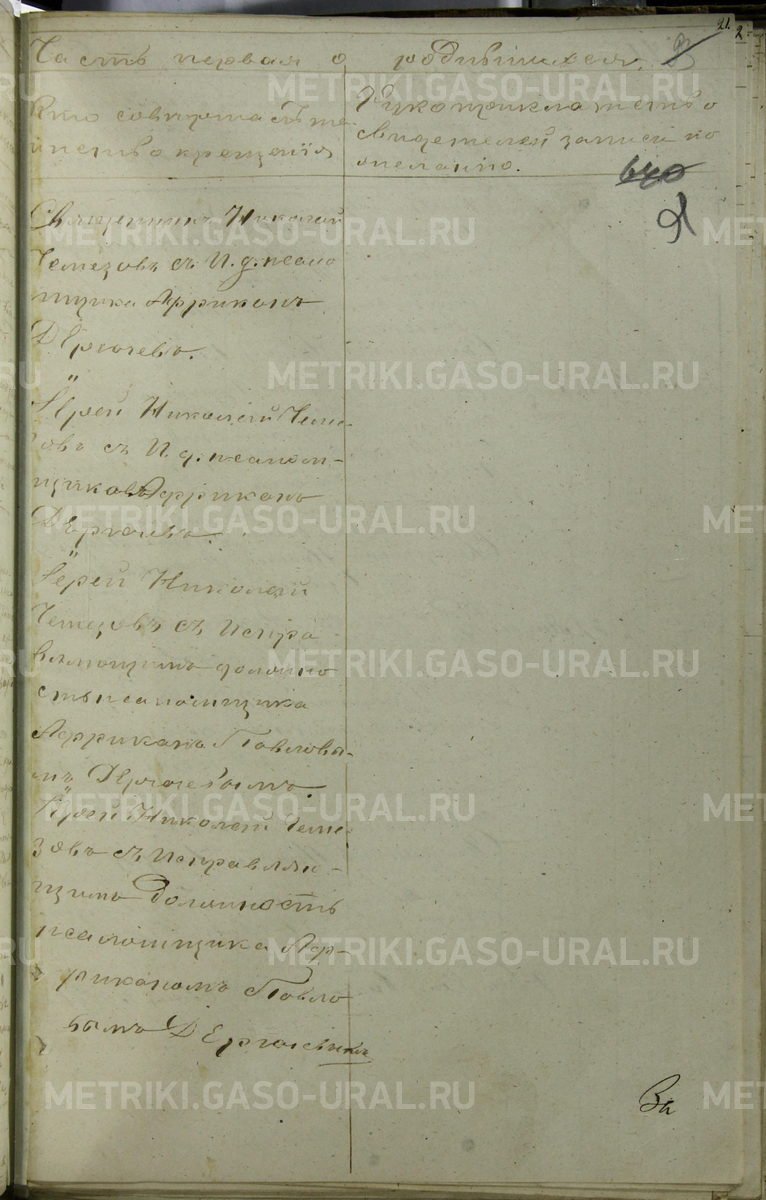 21 2
Часть первая о родившихся.
Кто совершалъ та-
инство крещенія
Рукоприкладство
свидетелей записи по
желанію.
680
91
Священникъ Николай
Чемезовъ съ И. д. псало
мщика Африканъ
Дерючевъ.
Іерей Николай Чеме-
зовъ съ И. д. псалом-
щиковъ Африканъ
Іерей Николай
Чемезовъ съ Испра
вляющимъ должно
сть псаломщика
Африканъ Павловы-
мъ
Іерей Николай Чеме-
зовъ съ Исправляю-
щимъ Должность
псаломщика Аф-
риканомъ Павло
вымъ
За
METRIKI.GASO-URAL.RU